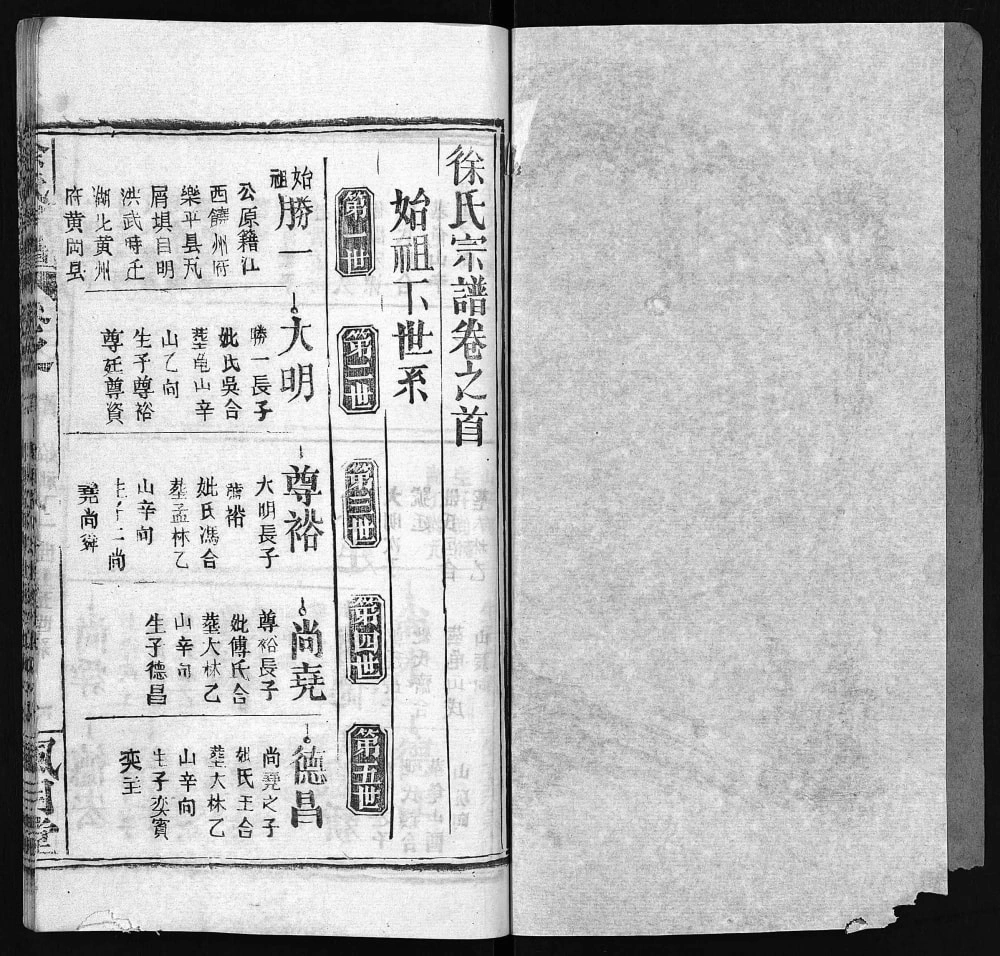 徐氏宗譜卷之首
始祖下世系
第一世
始祖
勝一
公原籍江
西饒州府
樂平县瓦
屑垻自明
洪武時迁
湖北黄州
府黄岡县
第二世
大明
勝一長子
妣氏吳合
塟龟山辛
山乙向
生子尊裕
尊廷尊資
第三世
尊裕
大明長子
諱裕
妣氏馮合
塟孟林乙
山辛向
生子二尚
堯尚舜
第四世
尚堯
尊裕長子
妣傅氏合
塟大林乙
山辛向
生子德昌
第五世
德昌
尚堯之子
妣氏王合
塟大林乙
山辛向
生子奕賓
奕主